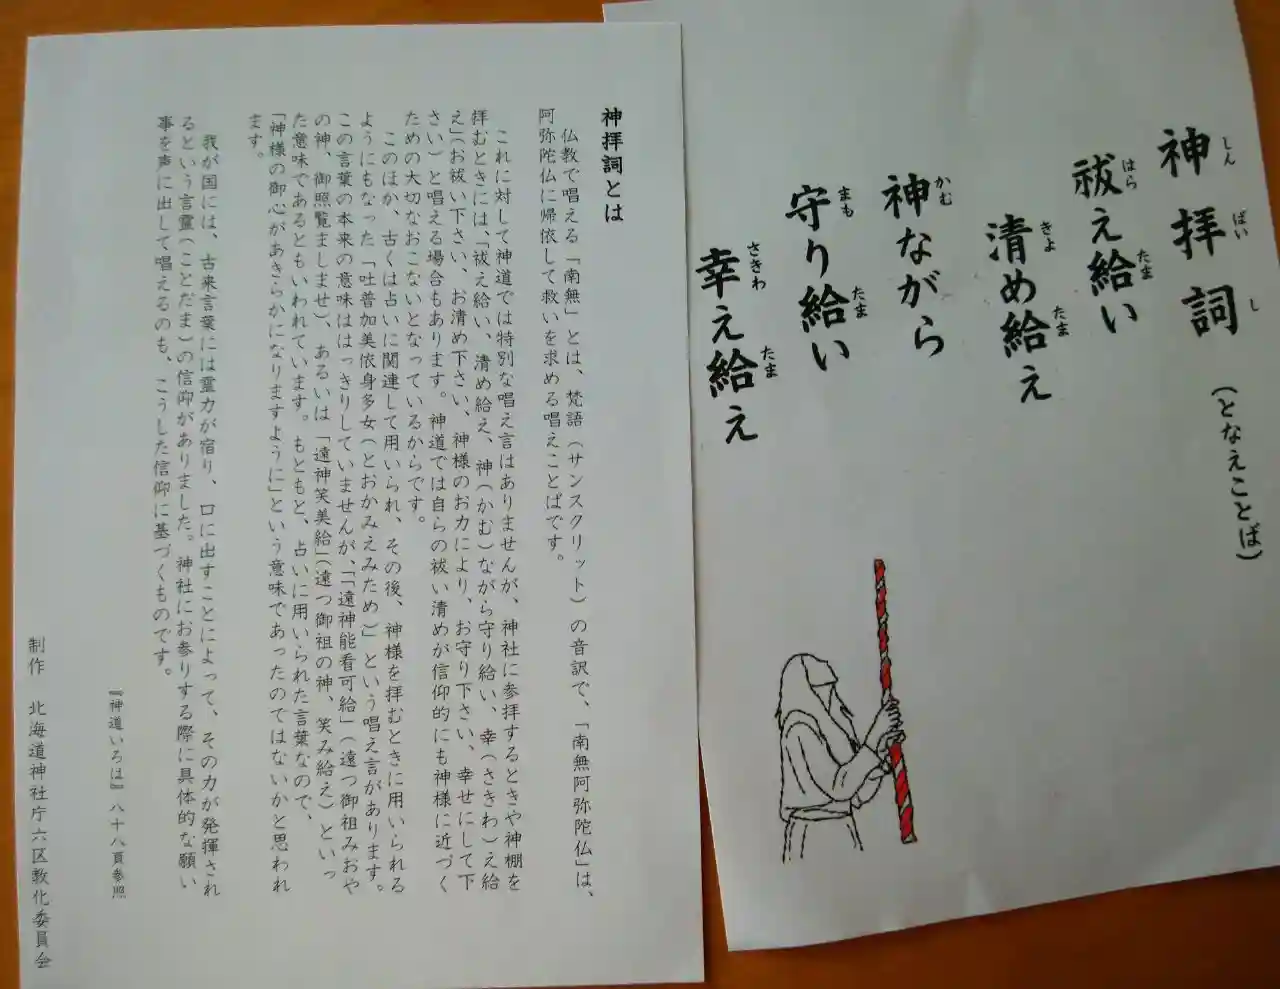 神拝詞(となえことば)
しんぱいし
祓え給い
はらたま
清め給え
きよたま
神ながら
かむ
守り給い
まもたま
幸え給え
さきわたま
神拝詞とは
仏教で唱える「南無」とは、梵語(サンスクリット)の音訳で、「南無阿弥陀仏」は、
阿弥陀仏に帰依して救いを求める唱えことばです。
これに対して神道では特別な唱え言はありませんが、神社に参拝するときや神棚を
拝むときには、「祓え給い、清め給え、神(かむ)ながら守り給い、幸(さきわ)え給
え」(お祓い下さい、お清め下さい、神様のお力により、お守り下さい、幸せにして下
さい)と唱える場合もあります。神道では自らの祓い清めが信仰的にも神様に近づく
ための大切なおこないとなっているからです。
このほか、古くは占いに関連して用いられ、その後、神様を拝むときに用いられる
ようにもなった「吐普加美依身多女(とおかみえみため)」という唱え言があります。
この言葉の本来の意味ははっきりしていませんが、「「遠神能看可給」(遠つ御祖みおや
の神、御照覧ましませ)、あるいは「遠神笑美給」(遠つ御祖の神、笑み給え)といっ
た意味であるともいわれています。もともと、占いに用いられた言葉なので、
「神様の御心があきらかになりますように」という意味であったのではないかと思われ
ます。
我が国には、古来言葉には霊力が宿り、口に出すことによって、その力が発揮され
るという言霊(ことだま)の信仰がありました。神社にお参りする際に具体的な願い
事を声に出して唱えるのも、こうした信仰に基づくものです。
『神道いろは』八十八頁参照
制作 北海道神社庁六区教化委員会